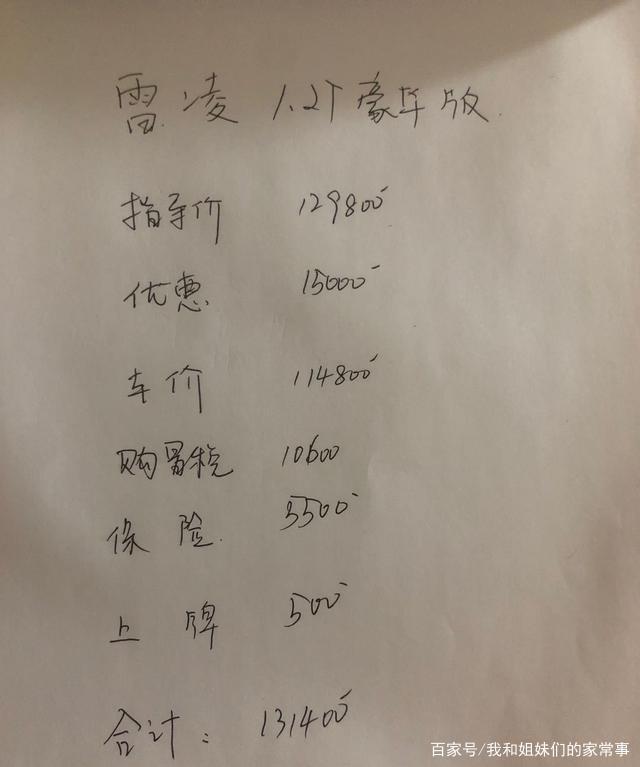 雷凌 1.2T豪华版
指导价 129800
优惠 15000
车价 114800
购置税 10600
保险 5500
上牌 500
合计: 131400
百家号/我和姐妹们的家常事